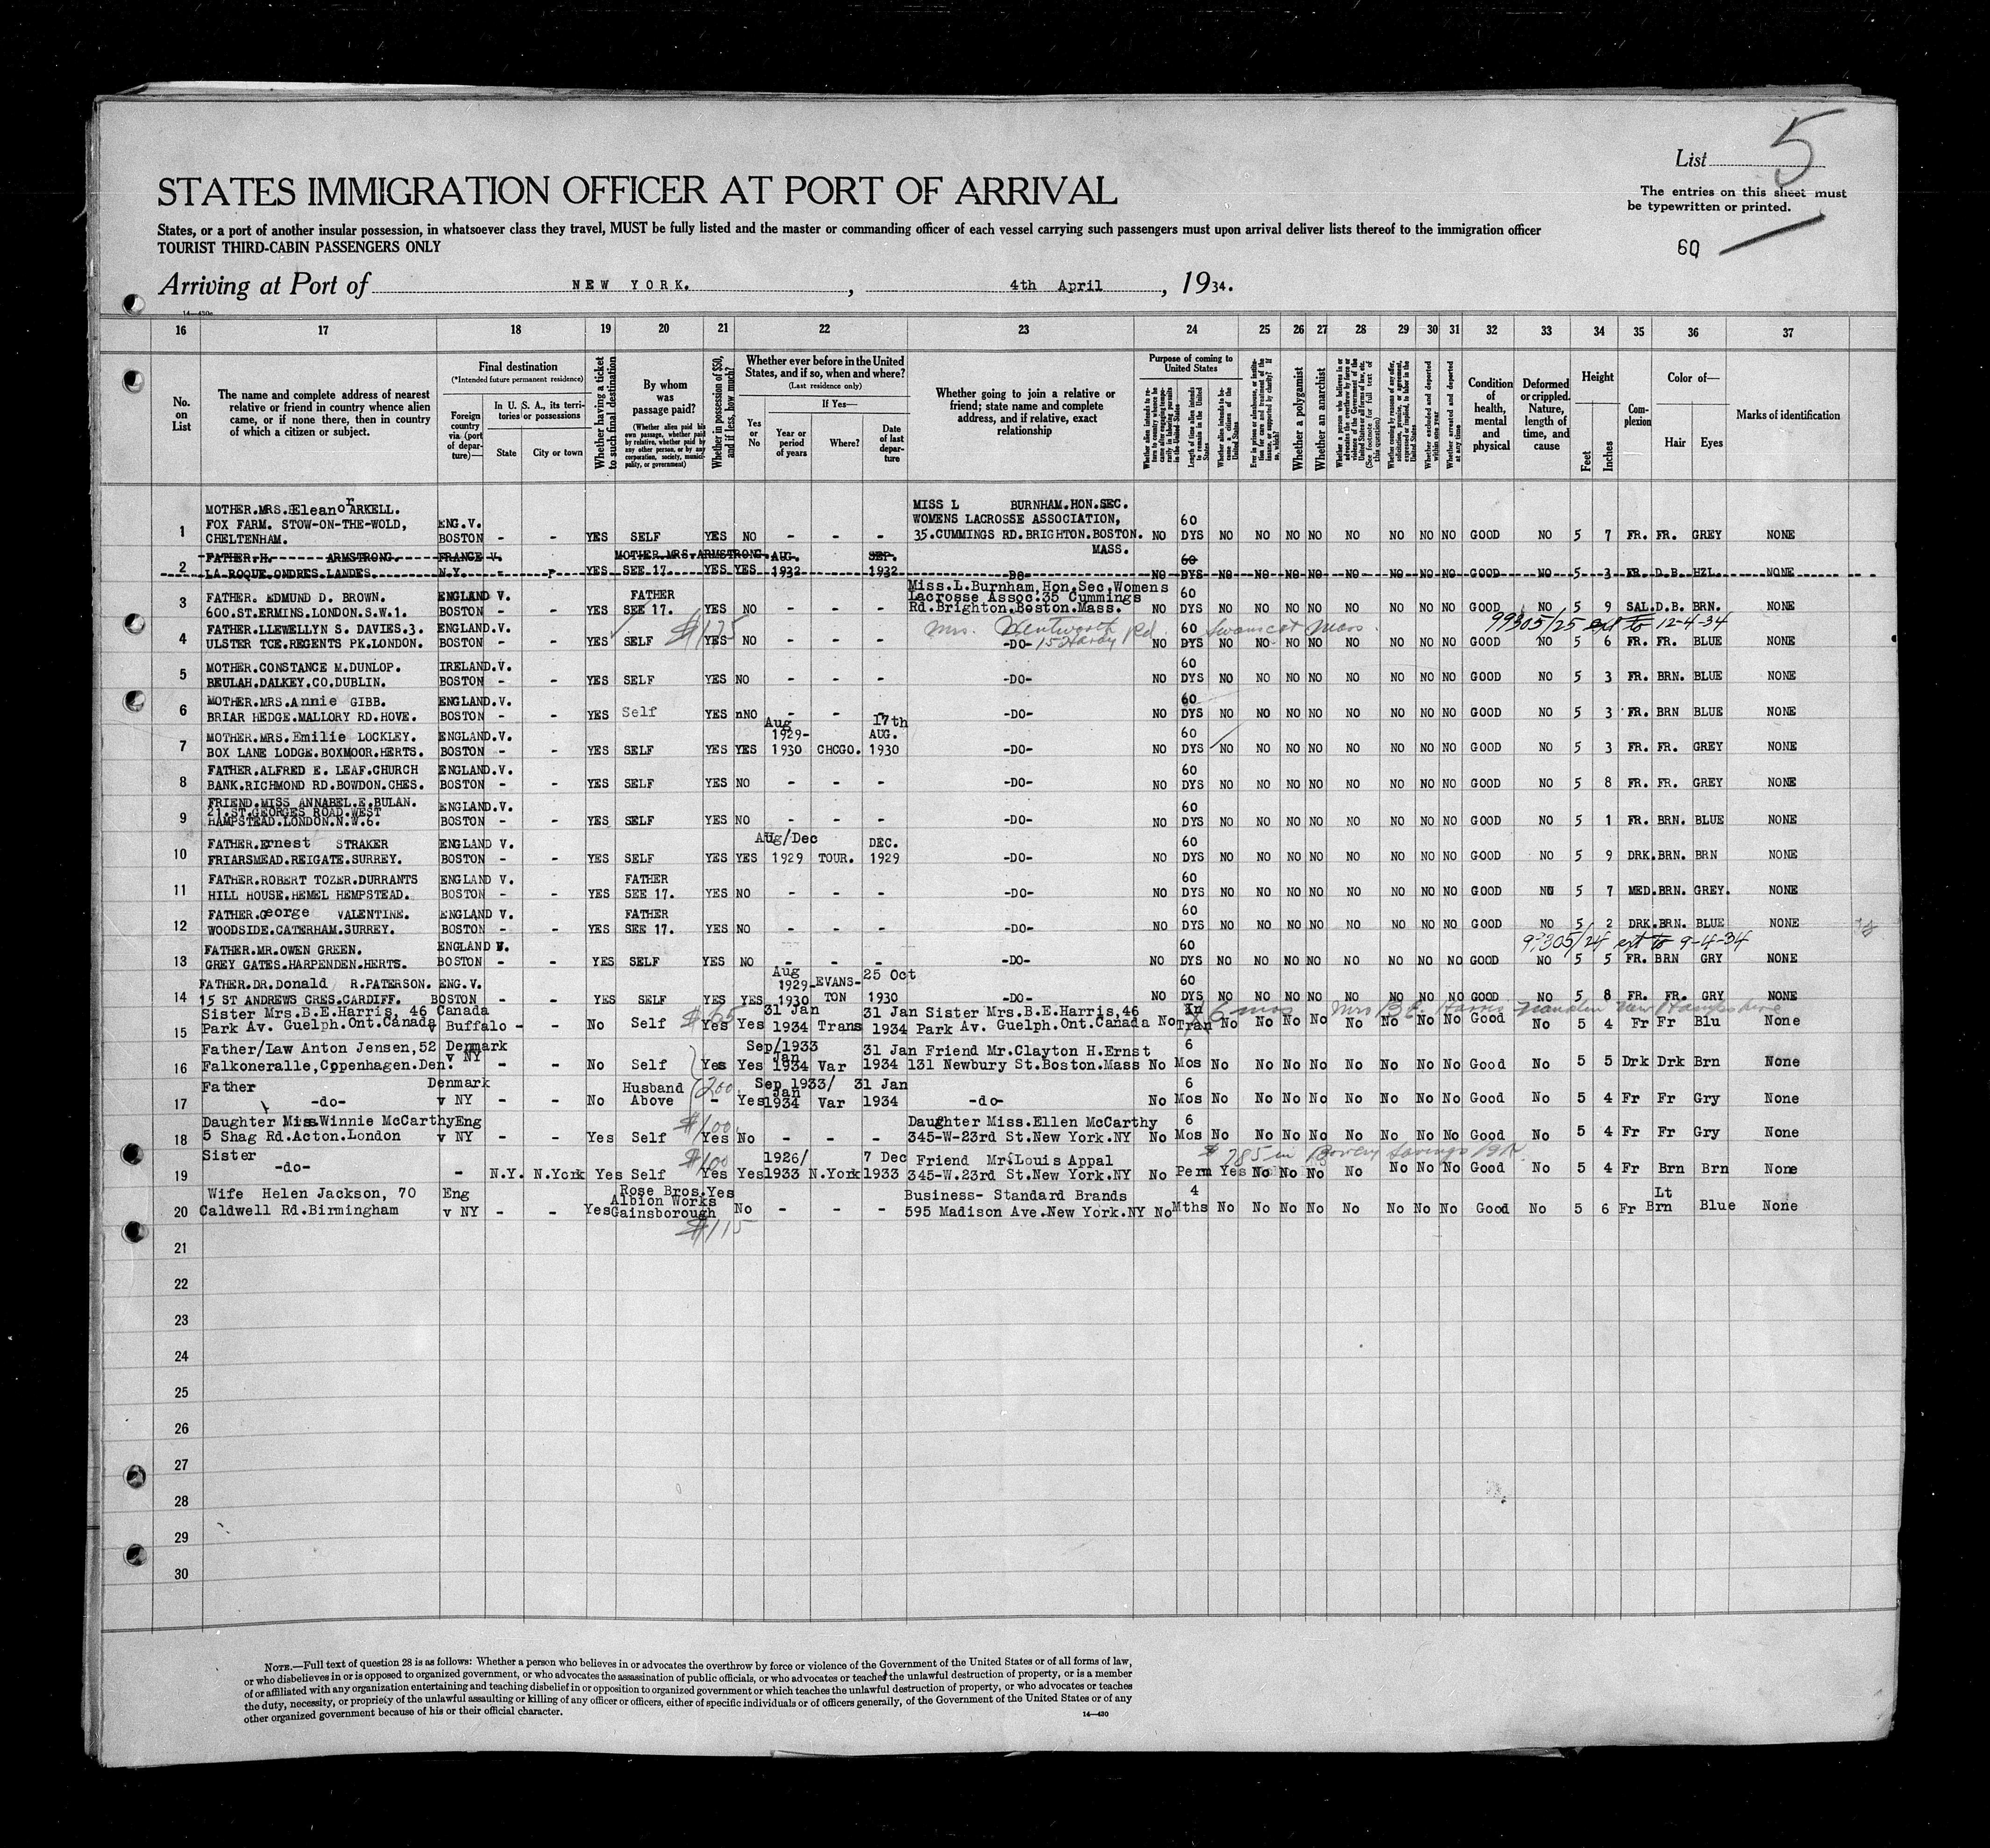 List 5
STATES IMMIGRATION OFFICER AT PORT OF ARRIVAL
The entries on this sheet must
be typewritten or printed.
States, or a port of another insular possession, in whatsoever class they travel, MUST be fully listed and the master or commanding officer of each vessel carrying such passengers must upon arrival deliver lists thereof to the immigration officer
TOURIST THIRD-CABIN PASSENGERS ONLY
60
Arriving at Port of NEW YORK. , 4th April , 1934.
16 17 18 19 20 21 22 23 24 25 26 27 28 29 30 31 32 33 34 35 36 37
No. on List
The name and complete address of nearest relative or friend in country whence alien came, or if none there, then in country of which a citizen or subject.
Final destination
(*Intended future permanent residence)
Foreign country via (port of departure)—
In U. S. A., its territories or possessions
State City or town
Whether having a ticket to such final destination
By whom was passage paid?
(Whether alien paid his own passage, whether paid by relative, whether paid by any other person, or by any corporation, society, municipality, or government)
Whether in possession of $50, and if less, how much?
Whether ever before in the United States, and if so, when and where?
(Last residence only)
Yes or No
If Yes—
Year or period of years Where? Date of last departure
Whether going to join a relative or friend; state name and complete address, and if relative, exact relationship
Purpose of coming to United States
Length of time alien intends to remain in the United States
Whether alien intends to become a citizen of the United States
Whether a polygamist
Whether an anarchist
Whether excluded and deported within one year
Whether arrested and deported at any time
Condition of health, mental and physical
Deformed or crippled. Nature, length of time, and cause
Height
Feet Inches
Complexion
Color of—
Hair Eyes
Marks of identification
MOTHER.MRS.Eleanor ARKELL. MISS L BURNHAM.HON.SEC.
FOX FARM. STOW-ON-THE-WOLD, ENG.V. WOMENS LACROSSE ASSOCIATION, 60
1 CHELTENHAM. BOSTON - - YES SELF YES NO - - - 35.CUMMINGS RD.BRIGHTON.BOSTON. NO DYS NO NO NO NO NO NO NO NO GOOD NO 5 7 FR. FR. GREY NONE
FATHER.H. ARMSTRONG. FRANCE V. MOTHER.MRS.ARMSTRONG. AUG. SEP. MASS. 60
2 LA ROQUE.ONDRES.LANDES. N.Y. - - YES SEE 17. YES YES 1932 1932 -DO- NO DYS NO NO NO NO NO NO NO NO GOOD NO 5 3 FR. D.B. HZL. NONE
FATHER. EDMUND D. BROWN. ENGLAND V. FATHER Miss.L.Burnham,Hon.Sec,Womens Lacrosse Assoc:35 Cummings 60
3 600.ST.ERMINS.LONDON.S.W.1. BOSTON - - YES SEE 17. YES NO - - - Rd.Brighton.Boston.Mass. NO DYS NO NO NO NO NO NO NO NO GOOD NO 5 9 SAL. D.B. BRN. NONE
FATHER.LLEWELLYN S. DAVIES.3. ENGLAND.V. $125 Mrs. Wentworth 15 Hardy Rd 60 Swamscot Mass. 99305/25 ext to 12-4-34
4 ULSTER TCE.REGENTS PK.LONDON. BOSTON - - YES SELF YES NO - - - -DO- NO DYS NO NO NO NO NO NO NO NO GOOD NO 5 6 FR. FR. BLUE NONE
MOTHER.CONSTANCE M.DUNLOP. IRELAND.V. 60
5 BEULAH.DALKEY.CO.DUBLIN. BOSTON - - YES SELF YES NO - - - -DO- NO DYS NO NO NO NO NO NO NO NO GOOD NO 5 3 FR. BRN. BLUE NONE
MOTHER.MRS.Annie GIBB. ENGLAND.V. 60
6 BRIAR HEDGE.MALLORY RD.HOVE. BOSTON - - YES Self YES nNO - - - -DO- NO DYS NO NO NO NO NO NO NO NO GOOD NO 5 3 FR. BRN BLUE NONE
MOTHER.MRS.Emilie LOCKLEY. ENGLAND.V. Aug 1929- 17th AUG. 60
7 BOX LANE LODGE.BOXMOOR.HERTS. BOSTON - - YES SELF YES YES 1930 CHCGO. 1930 -DO- NO DYS NO NO NO NO NO NO NO NO GOOD NO 5 3 FR. FR. GREY NONE
FATHER.ALFRED E. LEAF.CHURCH ENGLAND.V. 60
8 BANK.RICHMOND RD.BOWDON.CHES. BOSTON - - YES SELF YES NO - - - -DO- NO DYS NO NO NO NO NO NO NO NO GOOD NO 5 8 FR. FR. GREY NONE
FRIEND.MISS ANNABEL.E.BULAN.
21.ST.GEORGES ROAD.WEST ENGLAND.V. 60
9 HAMPSTEAD.LONDON.N.W.6. BOSTON - - YES SELF YES NO - - - -DO- NO DYS NO NO NO NO NO NO NO NO GOOD NO 5 1 FR. BRN. BLUE NONE
FATHER.Ernest STRAKER ENGLAND V. Aug/Dec DEC. 60
10 FRIARSMEAD.REIGATE.SURREY. BOSTON - - YES SELF YES YES 1929 TOUR. 1929 -DO- NO DYS NO NO NO NO NO NO NO NO GOOD NO 5 9 DRK. BRN. BRN NONE
FATHER.ROBERT TOZER.DURRANTS ENGLAND V. FATHER 60
11 HILL HOUSE.HEMEL HEMPSTEAD. BOSTON - - YES SEE 17. YES NO - - - -DO- NO DYS NO NO NO NO NO NO NO NO GOOD NO 5 7 MED. BRN. GREY. NONE
FATHER.George VALENTINE. ENGLAND V. FATHER 60
12 WOODSIDE.CATERHAM.SURREY. BOSTON - - YES SEE 17. YES NO - - - -DO- NO DYS NO NO NO NO NO NO NO NO GOOD NO 5 2 DRK. BRN. BLUE NONE
FATHER.MR.OWEN GREEN. ENGLAND V. 60 99305/24 ext to 9-4-34
13 GREY GATES.HARPENDEN.HERTS. BOSTON - - YES SELF YES NO - - - -DO- NO DYS NO NO NO NO NO NO NO NO GOOD NO 5 5 FR. BRN GRY NONE
FATHER.DR.Donald R.PATERSON. ENG.V. Aug 1929- EVANS- 25 Oct 60
14 15 ST ANDREWS CRES.CARDIFF. BOSTON - - YES SELF YES YES 1930 TON 1930 -DO- NO DYS NO NO NO NO NO NO NO NO GOOD NO 5 8 FR. FR. GRY NONE
Sister Mrs.B.E.Harris, 46 Canada 31 Jan 31 Jan Sister Mrs.B.E.Harris,46 In 6 mos Mrs B.E. Harris New Hampshire
15 Park Av. Guelph.Ont.Canada v Buffalo - - No Self Yes Yes 1934 Trans 1934 Park Av. Guelph.Ont.Canada No Tran No No No No No No No No Good No 5 4 Fr Fr Blu None
Father/Law Anton Jensen,52 Denmark Sep/1933 Jan 31 Jan Friend Mr.Clayton H.Ernst 6
16 Falkoneralle,Copenhagen.Den. v NY - - No Self Yes Yes 1934 Var 1934 131 Newbury St.Boston.Mass No Mos No No No No No No No No Good No 5 5 Drk Drk Brn None
Father Denmark Husband 200 Sep 1933/ Jan 31 Jan 6
17 -do- v NY - - No Above - Yes 1934 Var 1934 -do- No Mos No No No No No No No No Good No 5 4 Fr Fr Gry None
Daughter Miss Winnie McCarthy Eng $100 Daughter Miss.Ellen McCarthy 6
18 5 Shag Rd.Acton.London v NY - - Yes Self Yes No - - - 345-W-23rd St.New York.NY No Mos No No No No No No No No Good No 5 4 Fr Fr Gry None
Sister $100 1926/ 7 Dec Friend Mr.Louis Appal $785 in Bowery Savings
19 -do- - N.Y. N.York Yes Self Yes Yes 1933 N.York 1933 345-W.23rd St.New York.NY No Perm Yes No No No No No No No Good No 5 4 Fr Brn Brn None
Wife Helen Jackson, 70 Eng Rose Bros. Albion Works Yes Business- Standard Brands 4 Lt
20 Caldwell Rd.Birmingham v NY - - Yes Gainsborough No - - - 595 Madison Ave.New York.NY No Mths No No No No No No No No Good No 5 6 Fr Brn Blue None
$115
21
22
23
24
25
26
27
28
29
30
NOTE.—Full text of question 28 is as follows: Whether a person who believes in or advocates the overthrow by force or violence of the Government of the United States or of all forms of law,
or who disbelieves in or is opposed to organized government, or who advocates the assassination of public officials, or who advocates or teaches the unlawful destruction of property, or is a member
of or affiliated with any organization entertaining and teaching disbelief in or opposition to organized government or which teaches the unlawful destruction of property, or who advocates or teaches
the duty, necessity, or propriety of the unlawful assaulting or killing of any officer or officers, either of specific individuals or of officers generally, of the Government of the United States or of any
other organized government because of his or their official character.
14—430